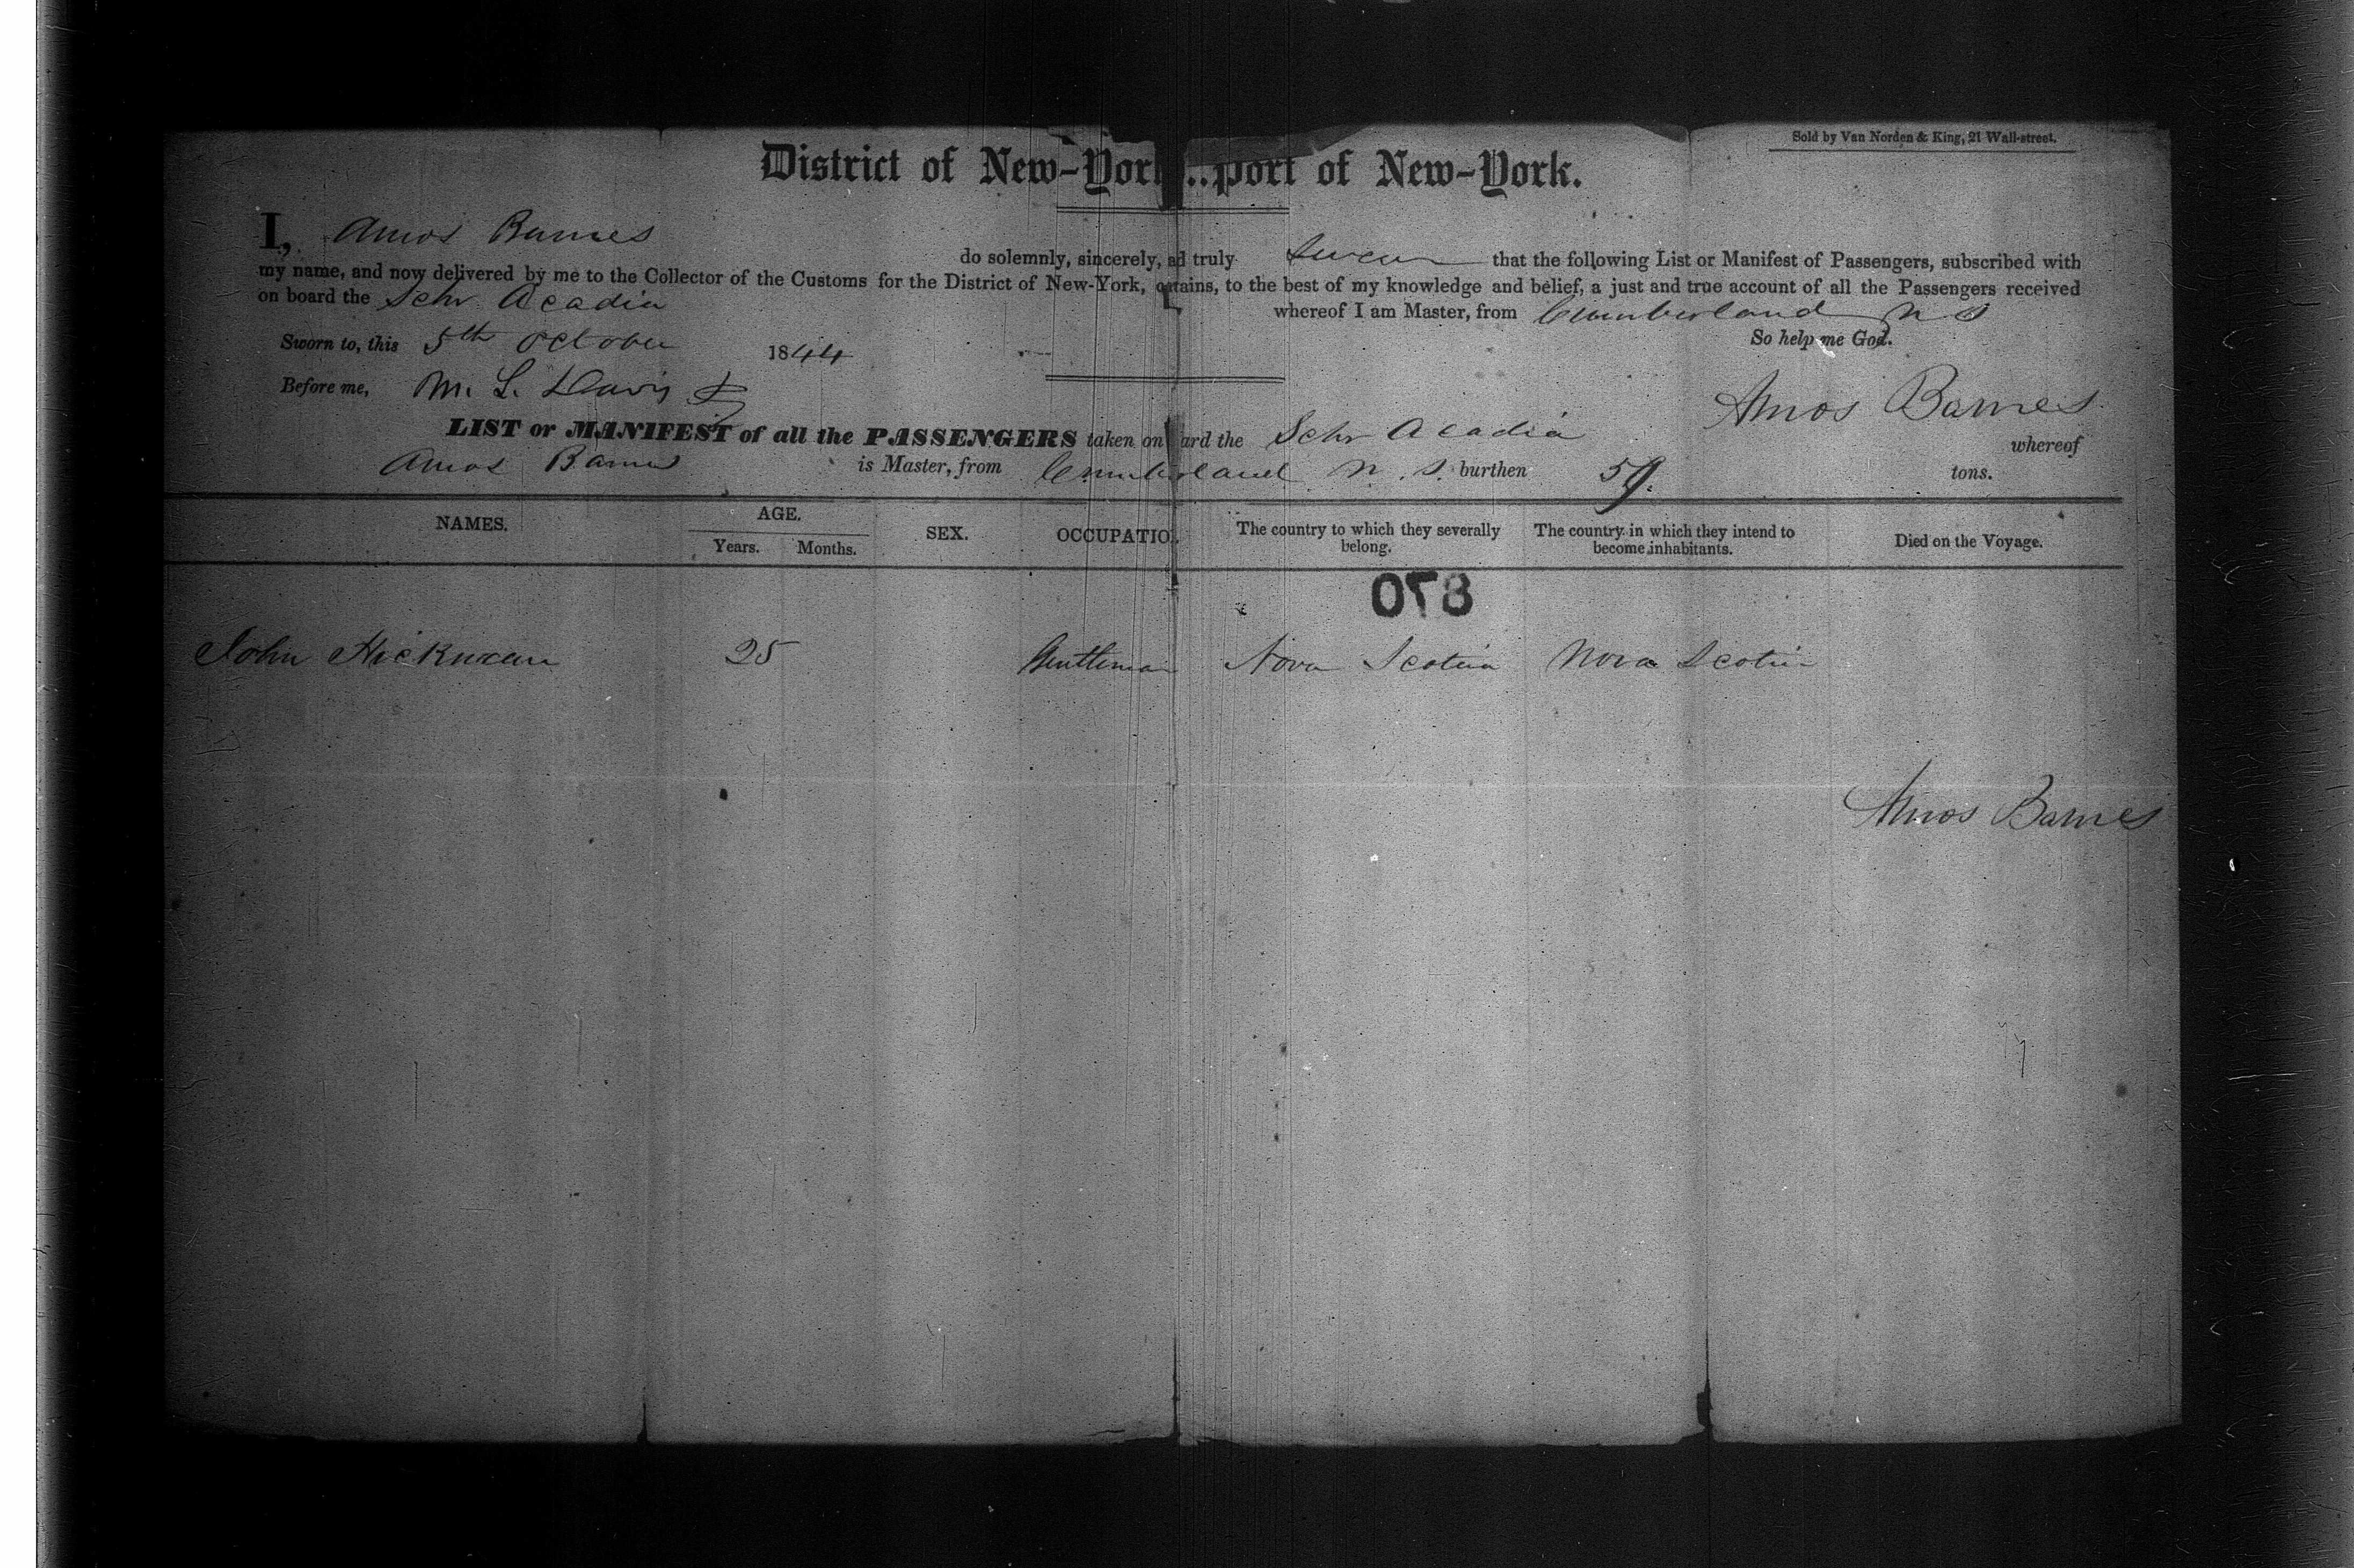 Sold by Van Norden & King, 21 Wall-street.
District of New-York..port of New-York.
I, Amos Barnes do solemnly, sincerely, ad truly swear that the following List or Manifest of Passengers, subscribed with
my name, and now delivered by me to the Collector of the Customs for the District of New-York, ontains, to the best of my knowledge and belief, a just and true account of all the Passengers received
on board the Schr Acadia whereof I am Master, from Cumberland N S
So help me God.
Sworn to, this 5th October 1844
Before me, M. L. Davis
Amos Barnes
LIST or MANIFEST of all the PASSENGERS taken on ard the Schr Acadia whereof
Amos Barnes is Master, from Cumberland N. S. burthen 59. tons.
NAMES. AGE. SEX. OCCUPATIO. The country to which they severally belong. The country in which they intend to become inhabitants. Died on the Voyage.
Years. Months.
870
John Hickman 25 Gentleman Nova Scotia Nova Scotia
Amos Barnes